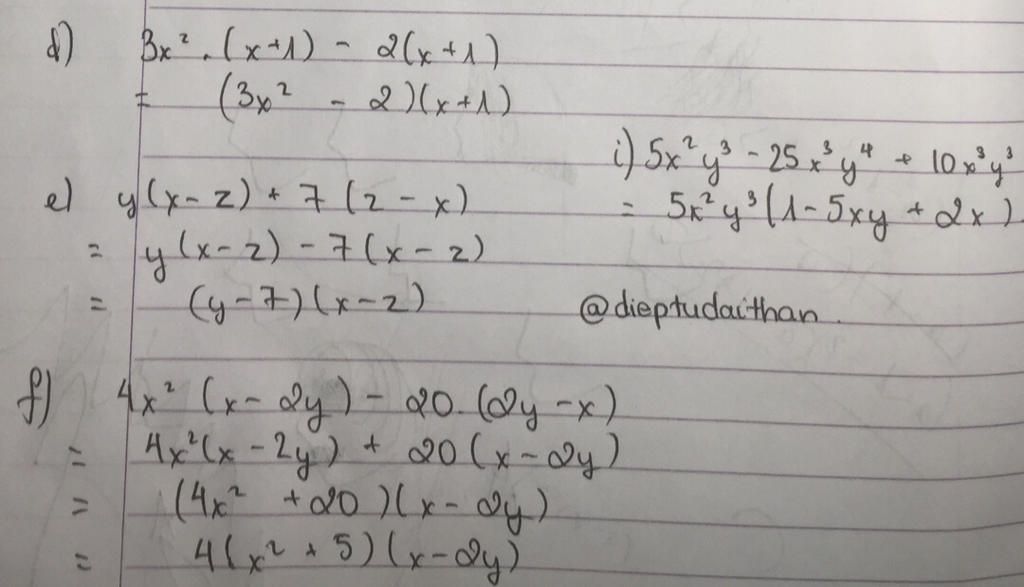 d) 3x² . (x+1) - 2(x+1)
= (3x² - 2)(x+1)
i) 5x²y³ - 25x³y⁴ + 10x³y³
= 5x²y³(1 - 5xy + 2x)
e) y(x-z) + 7(z-x)
= y(x-z) - 7(x-z)
= (y-7)(x-z)
@dieptudaithan.
f) 4x²(x-2y) - 20.(2y-x)
= 4x²(x-2y) + 20(x-2y)
= (4x² +20)(x-2y)
= 4(x² + 5)(x-2y)